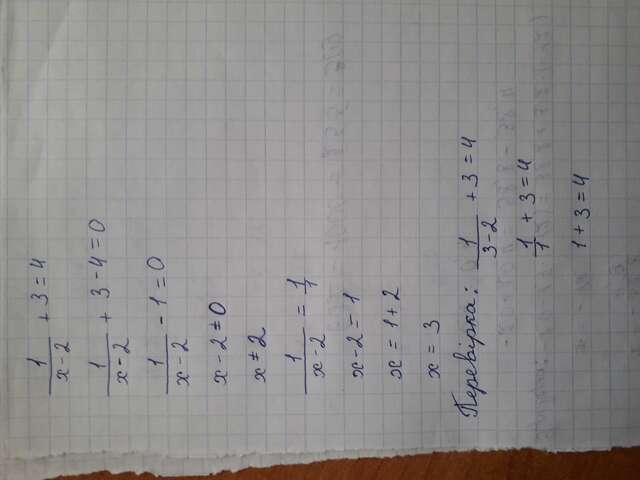 1/(x-2) + 3 = 4
1/(x-2) + 3 - 4 = 0
1/(x-2) - 1 = 0
x - 2 ≠ 0
x ≠ 2
1/(x-2) = 1/1
x - 2 = 1
x = 1 + 2
x = 3
Перевірка: 1/(3-2) + 3 = 4
1/1 + 3 = 4
1 + 3 = 4